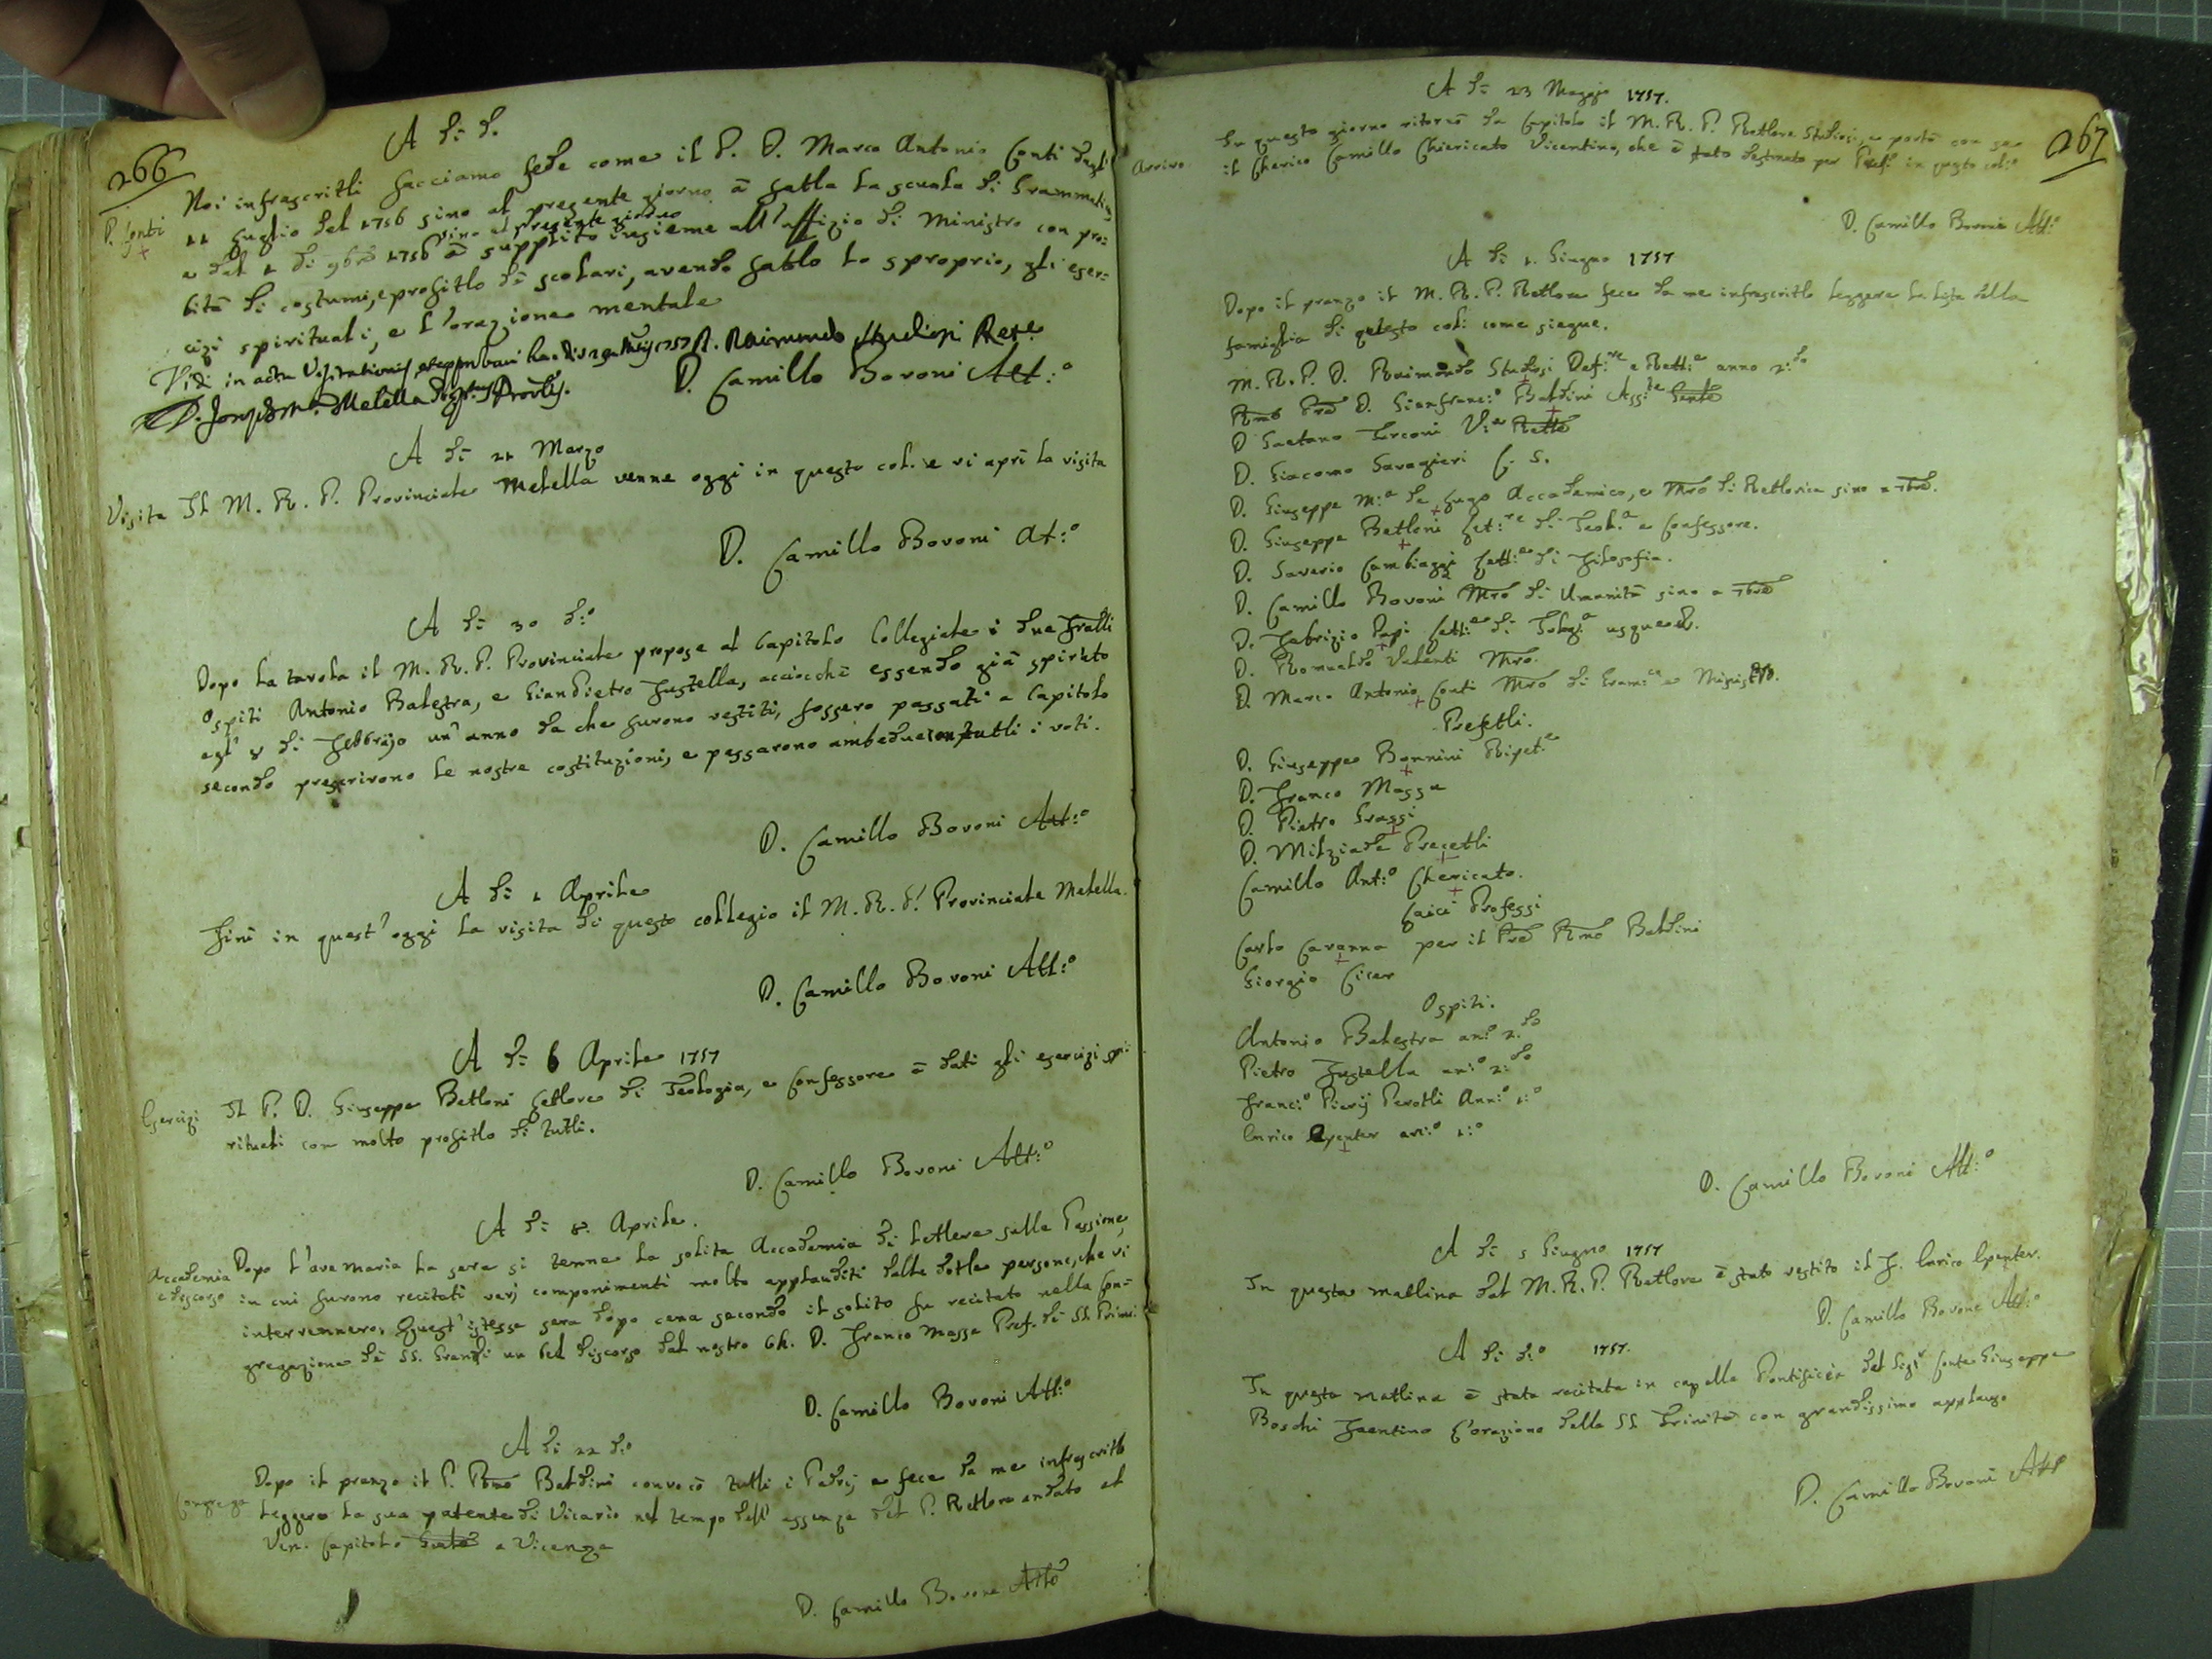 266
A dì d.
Noi infrascritti facciamo fede come il P. D. Marco Antonio Conti dagli
P. Conti
11 Luglio del 1756 sino al presente giorno à fatta la scuola di Grammatica
sino al presente giorno
e dal 1 di 9bre 1756 à supplito insieme all'uffizio di Ministro con pro:
bità di costumi, e profitto di scolari, avendo fatto lo sproprio, gli eser:
cizi spirituali, e l'orazione mentale
Vidi in actu Visitationis, et approbavi hac die 29 Martij 1757 D. Raimundo Studiosi Rett.e
D. Joseph M.a Metella Prep.tus Prov.lis.
D. Camillo Bovoni Att:o
A dì 21 Marzo
Visita Il M. R. P. Provinciale Metella venne oggi in questo col. e vi aprì la visita
D. Camillo Bovoni At:o
A dì 30 d:o
Dopo la tavola il M. R. P. Provinciale propose al Capitolo Collegiale i due Fratelli
Ospiti Antonio Balestra, e GianPietro Fustella, acciocchè essendo già spirato
agl' 8 di Febbrajo un' anno da che furono vestiti, fossero passati a Capitolo
secondo prescrivono le nostre costituzioni, e passarono ambedue con tutti i voti.
D. Camillo Bovoni Att:o
A dì 1 Aprile
Finì in quest'oggi la visita di questo collegio il M. R. P. Provinciale Metella.
D. Camillo Bovoni Att:o
A dì 6 Aprile 1757
Esercizi Il P. D. Giuseppe Bettoni Lettore di Teologia, e Confessore à dati gli esercizi spi:
rituali con molto profitto di tutti.
D. Camillo Bovoni Att:o
A dì 8. Aprile.
Accademia Dopo l'ave maria la sera si tenne la solita Accademia di Lettere sulla Passione,
e discorso in cui furono recitati varj componimenti molto applauditi dalle dotte persone, che vi
intervennero. Quest'istessa sera dopo cena secondo il solito fu recitato nella Con=
gregazione de SS. Grandi un bel discorso dal nostro Ch. D. Franco Massa Pref. de SS. Primi.
D. Camillo Bovoni Att:o
A dì 22 d:o
Dopo il pranzo il P. Rmo Baldini convocò tutti i Padrij e fece da me infrascritto
Congrega leggere la sua patente di Vicario nel tempo dell' assenza del P. Rettore andato al
Ven. Capitolo Gnle a Vicenza
D. Camillo Bovoni Atto
267
A dì 23 Maggio 1757.
In questo giorno ritornò da Capitolo il M. R. P. Rettore Studiosi, e portò con se
Arrivo il Cherico Camillo Chiericato Vicentino, che è stato destinato per Pref.o in questo col:o
D. Camillo Bovoni Att:o
A dì 1. Giugno 1757
Dopo il pranzo il M. R. P. Rettore fece da me infrascritto leggere la lista della
famiglia di questo col: come siegue.
M. R. P. D. Raimondo Studiosi Def:re e Rett:e anno 2:do
Rmo Pre D. Gianfranc:o Baldini Ass:te Gnle
D Gaetano Terconi V:e Rette
D. Giacomo Savagieri C. S.
D. Giuseppe M:a de Lugo Accademico, e Mro di Rettorica sino a 7bre.
D. Giuseppe Bettoni Let:re di Teol:a e Confessore.
D. Saverio Cambiaggi Lett:e di Filosofia.
D. Camillo Bovoni Mro di Umanità sino a 7bre
D. Fabrizio Papi Lett:e di Teolog:a usque ad.
D. Romualdo Valenti Mro.
D. Marco Antonio Conti Mro di Gram:ca e Ministro.
Prefetti.
D. Giuseppe Bonnini Ripet:e
D. Franco Massa
D. Pietro Grassi
D. Milziade Precetti
Camillo Ant:o Chericato.
Laici Professi
Carlo Caranna per il Pre Rmo Baldini
Giorgio Ciser
Ospiti.
Antonio Balestra an:o 2:do
Pietro Fustella an:o 2:do
Franc:o Pierij Perotti Ann:o 1:o
Enrico Epenter an:o 1:o
D. Camillo Bovoni Att:o
A dì 5 Giugno 1757
In questa mattina dal M. R. P. Rettore è stato vestito il F. Enrico Epenter.
D. Camillo Bovone Att:o
A dì d:o 1757.
In questa mattina è stata recitata in capella Pontificia dal Sig:r Conte Giuseppe
Boschi Faentino l'orazione della SS Trinità con grandissimo applauso
D. Camillo Bovoni Att